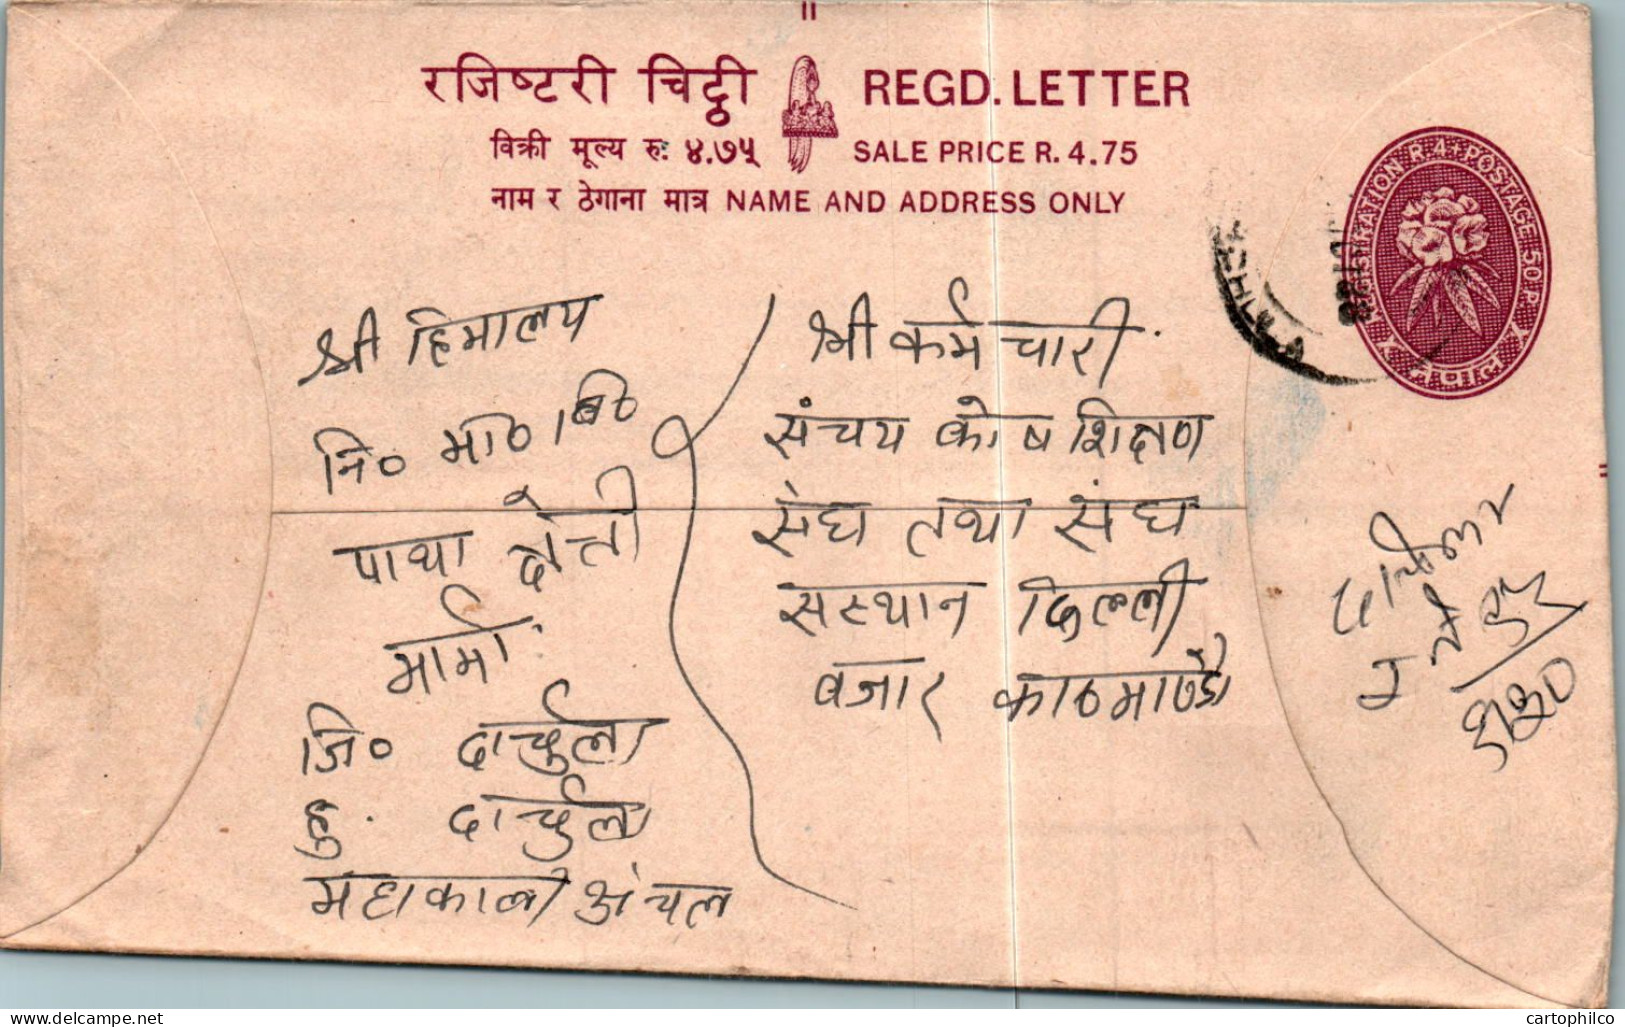 रजिष्टरी चिट्ठी REGD. LETTER
विक्री मूल्य रु: ४.७५ SALE PRICE R. 4.75
नाम र ठेगाना मात्र NAME AND ADDRESS ONLY
REGISTRATION R.4. POSTAGE 50 P.
नेपाल
श्री हिमालय
नि० मा० वि०
पाथा
मार्मा
जि० दार्चुला
हु. दार्चुला
महाकाली अंचल
श्री कर्मचारी
संचय कोष शिक्षण
संघ तथा संघ
सस्थान दिल्ली
बजार काठमाण्डौ
cartophilco